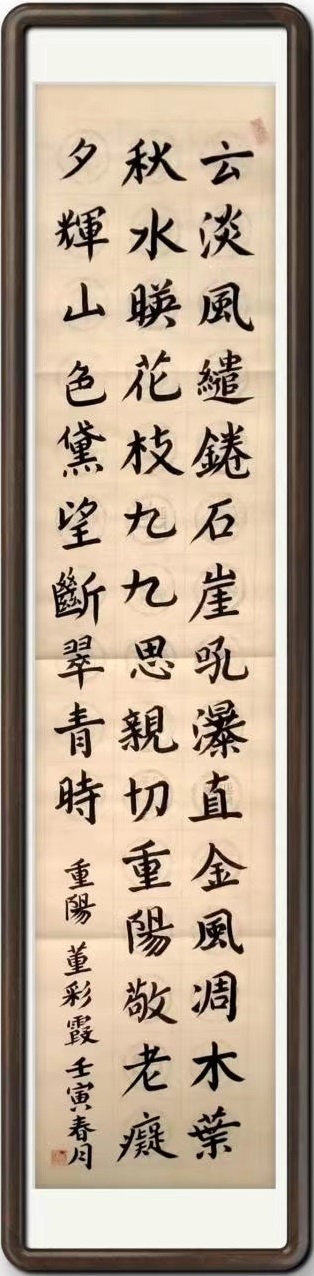 云淡風繾錈石崖吼瀑直金風凋木葉
秋水暎花枝九九思親切重陽敬老癡
夕輝山色黛望斷翠青時
重陽 董彩霞 壬寅春月